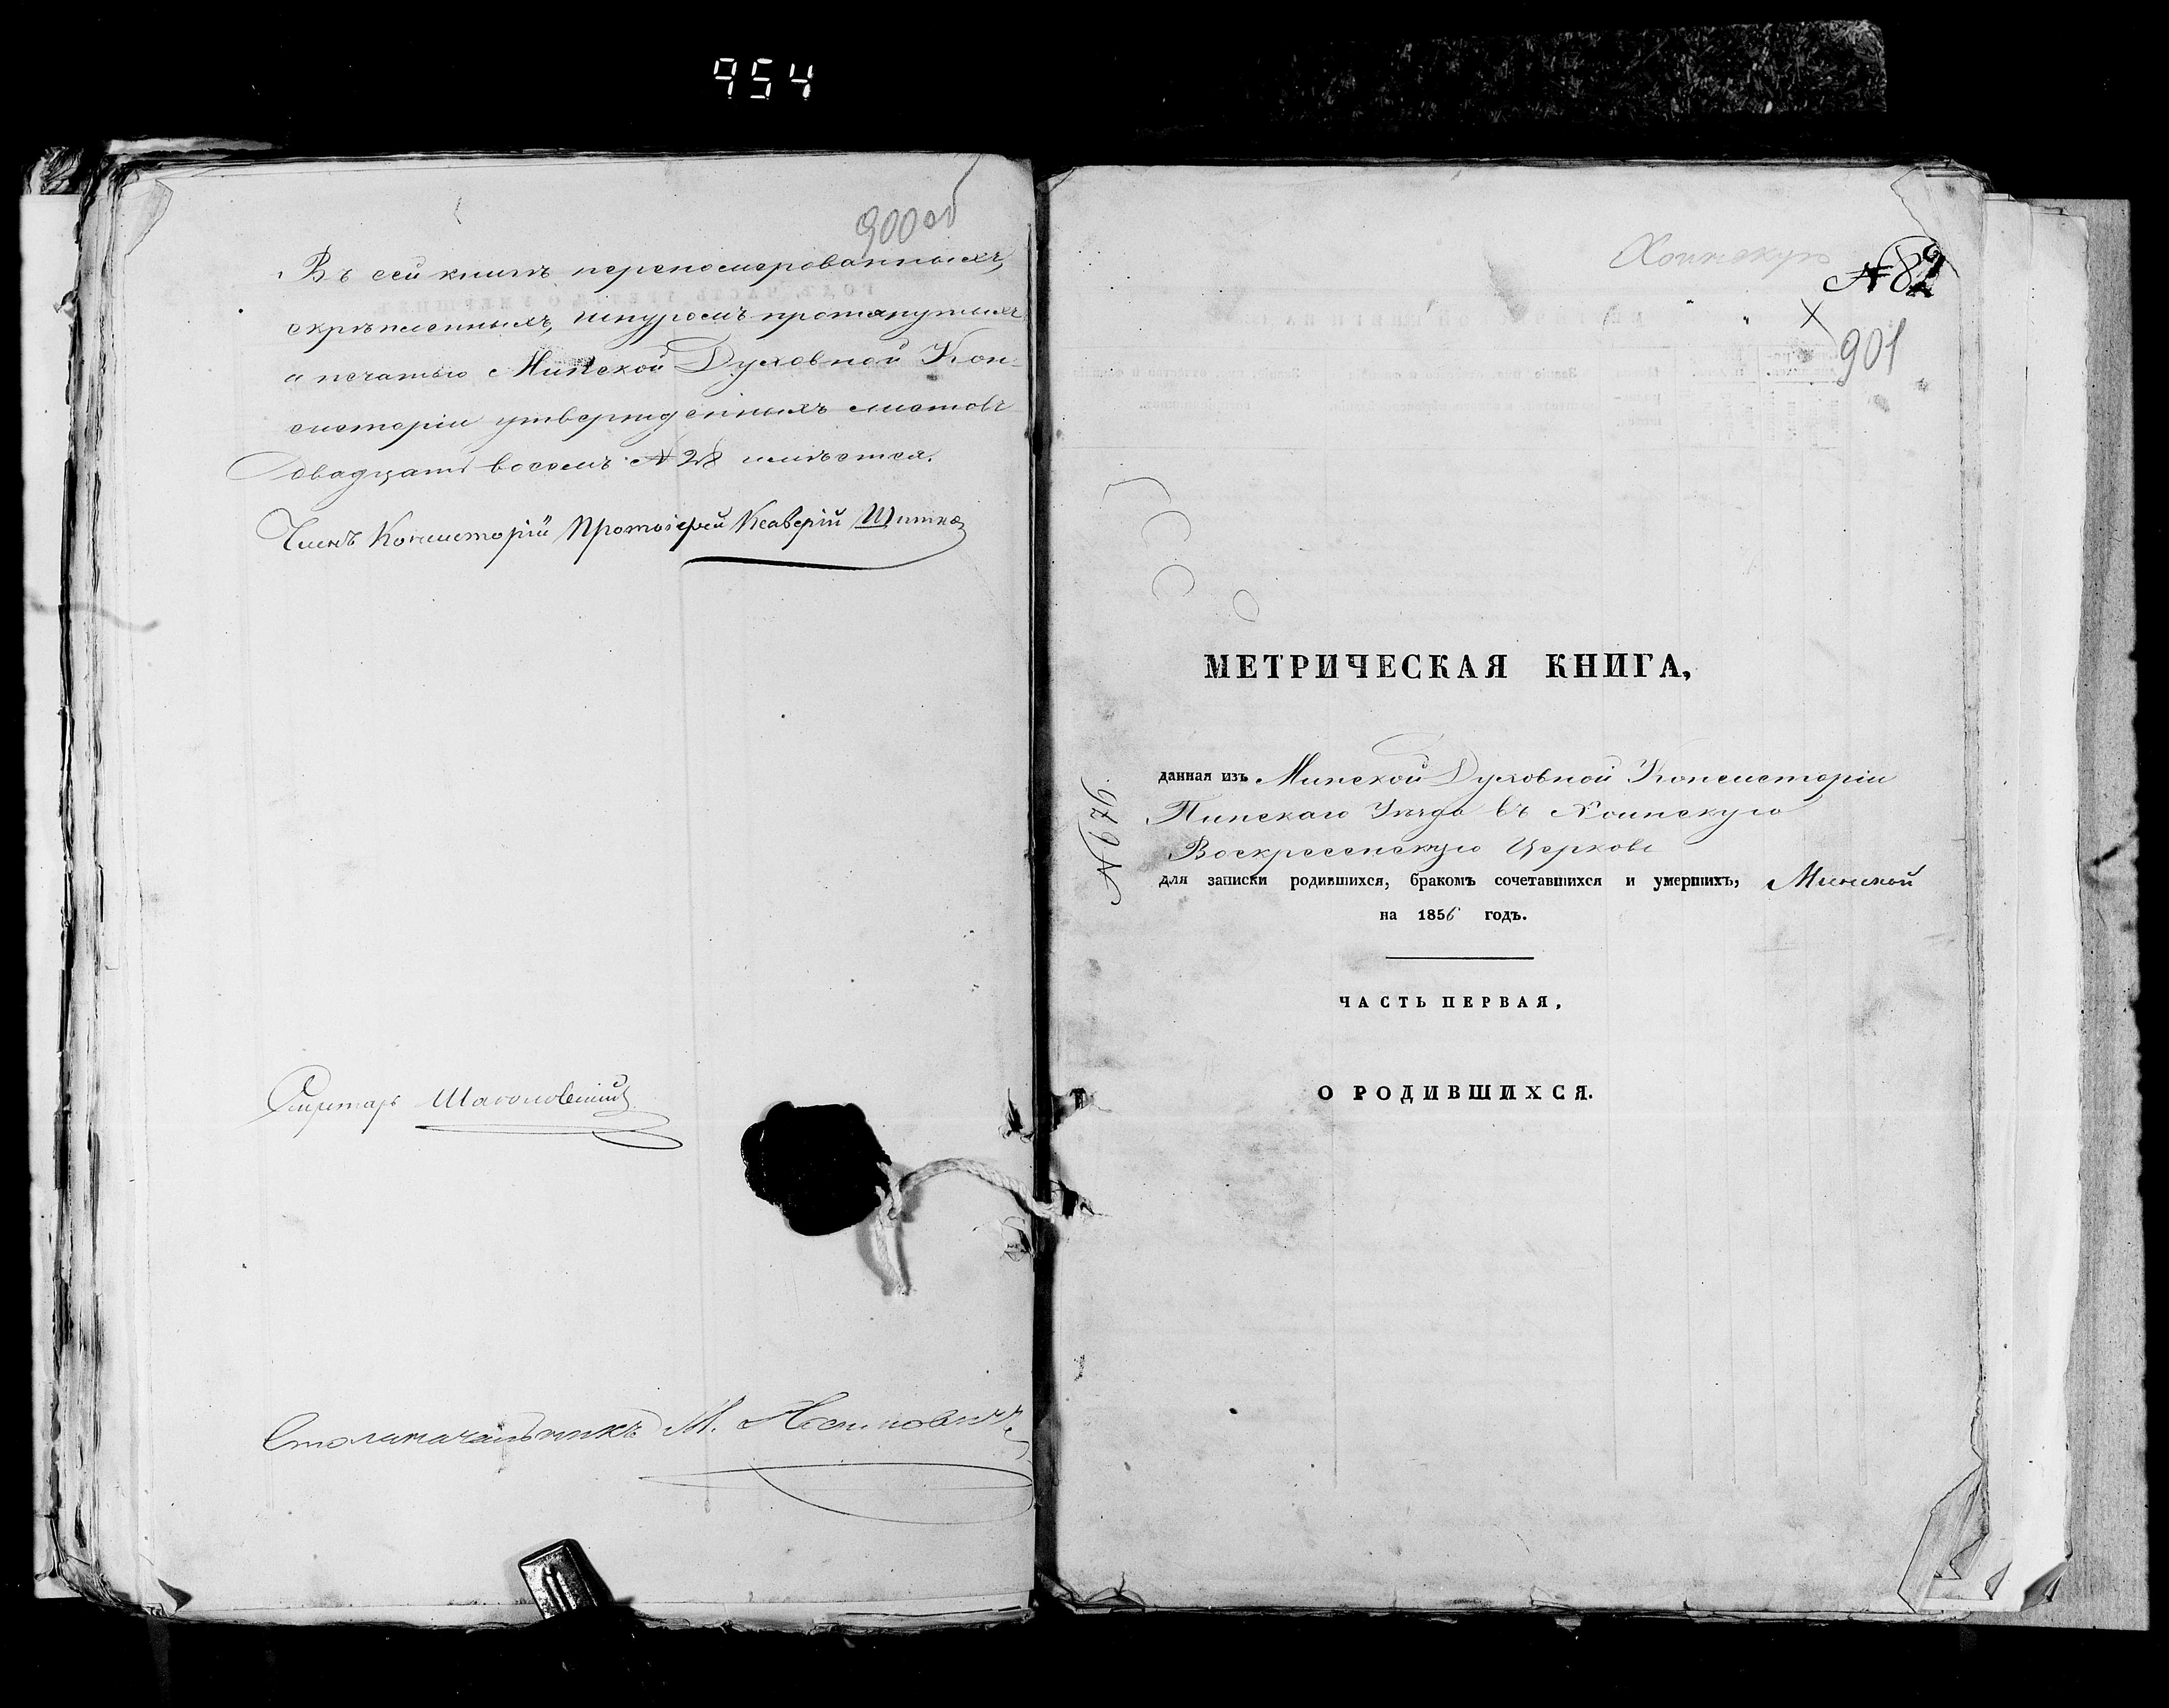 954
900 об
Въ сей книгѣ перепомерованныхъ,
скрѣпленныхъ, шнуромъ протянутыхъ
и печатью Минской Духовной Кон-
систоріи утвержденныхъ листовъ
двадцать восемь № 28 имѣется.
Членъ Консисторіи Протоіерей Ксаверій
Секретарь
Столоначальникъ М.
№ 82
901
МЕТРИЧЕСКАЯ КНИГА,
№ 676.
данная изъ Минской Духовной Консисторіи
Пинскаго Уѣзда въ Хоинскую
Воскресенскую Церковь
для записки родившихся, бракомъ сочетавшихся и умершихъ, Минской
на 1856 годъ.
ЧАСТЬ ПЕРВАЯ,
О РОДИВШИХСЯ.